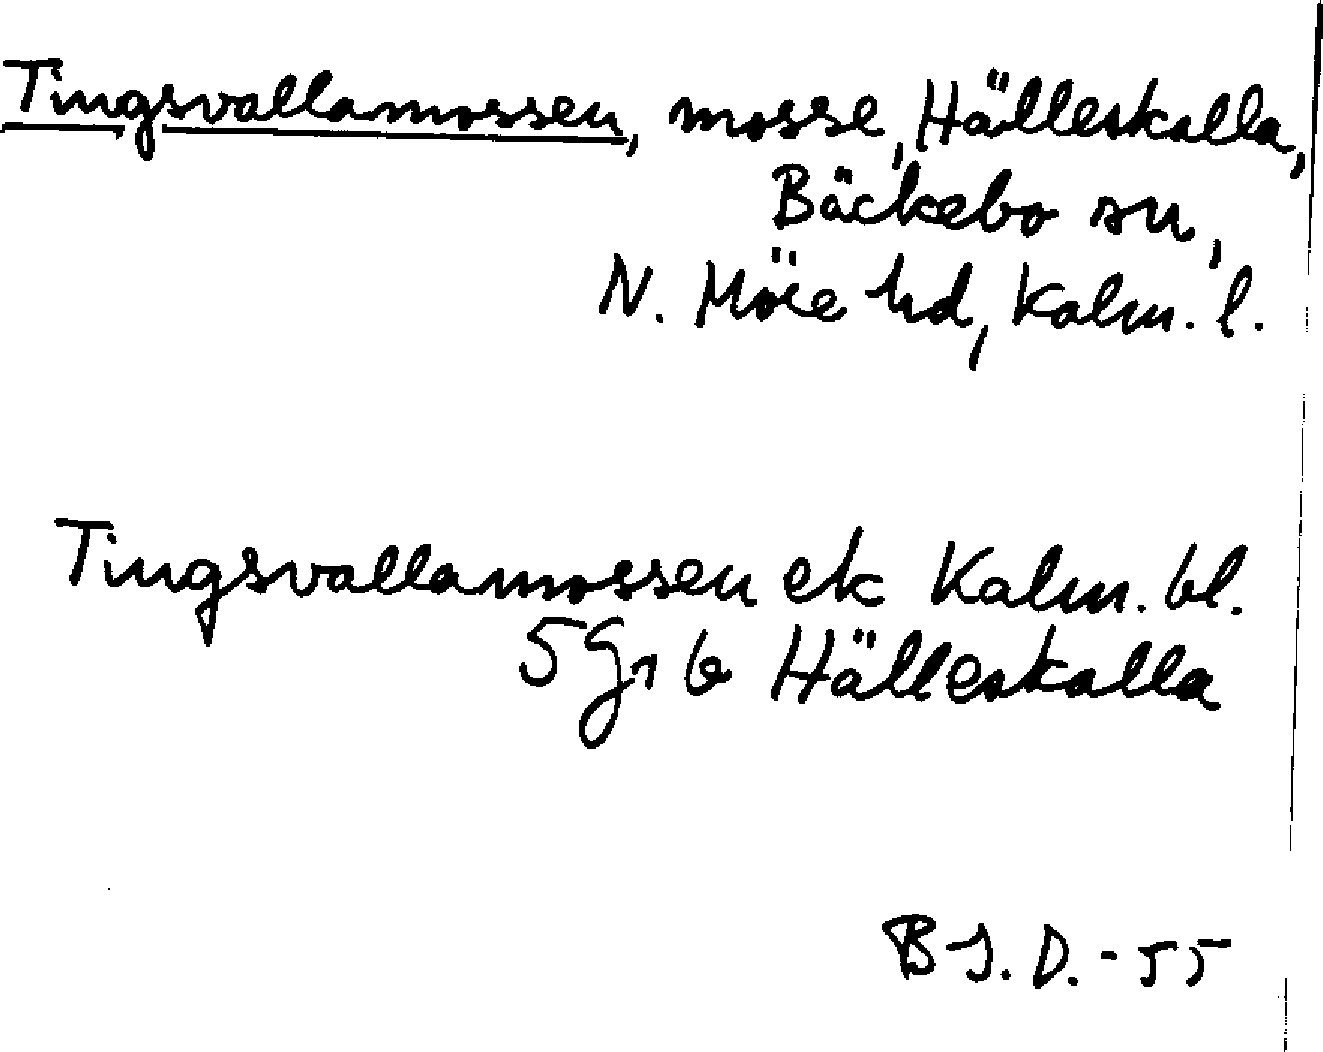 Tingsvallamossen, mosse, Hälleskalla,
Bäckebo sn,
N. Möre hd, Kalm. l.
Tingsvallamossen ek Kalm. bl.
5 G1 b Hälleskalla
B J. D. - 55